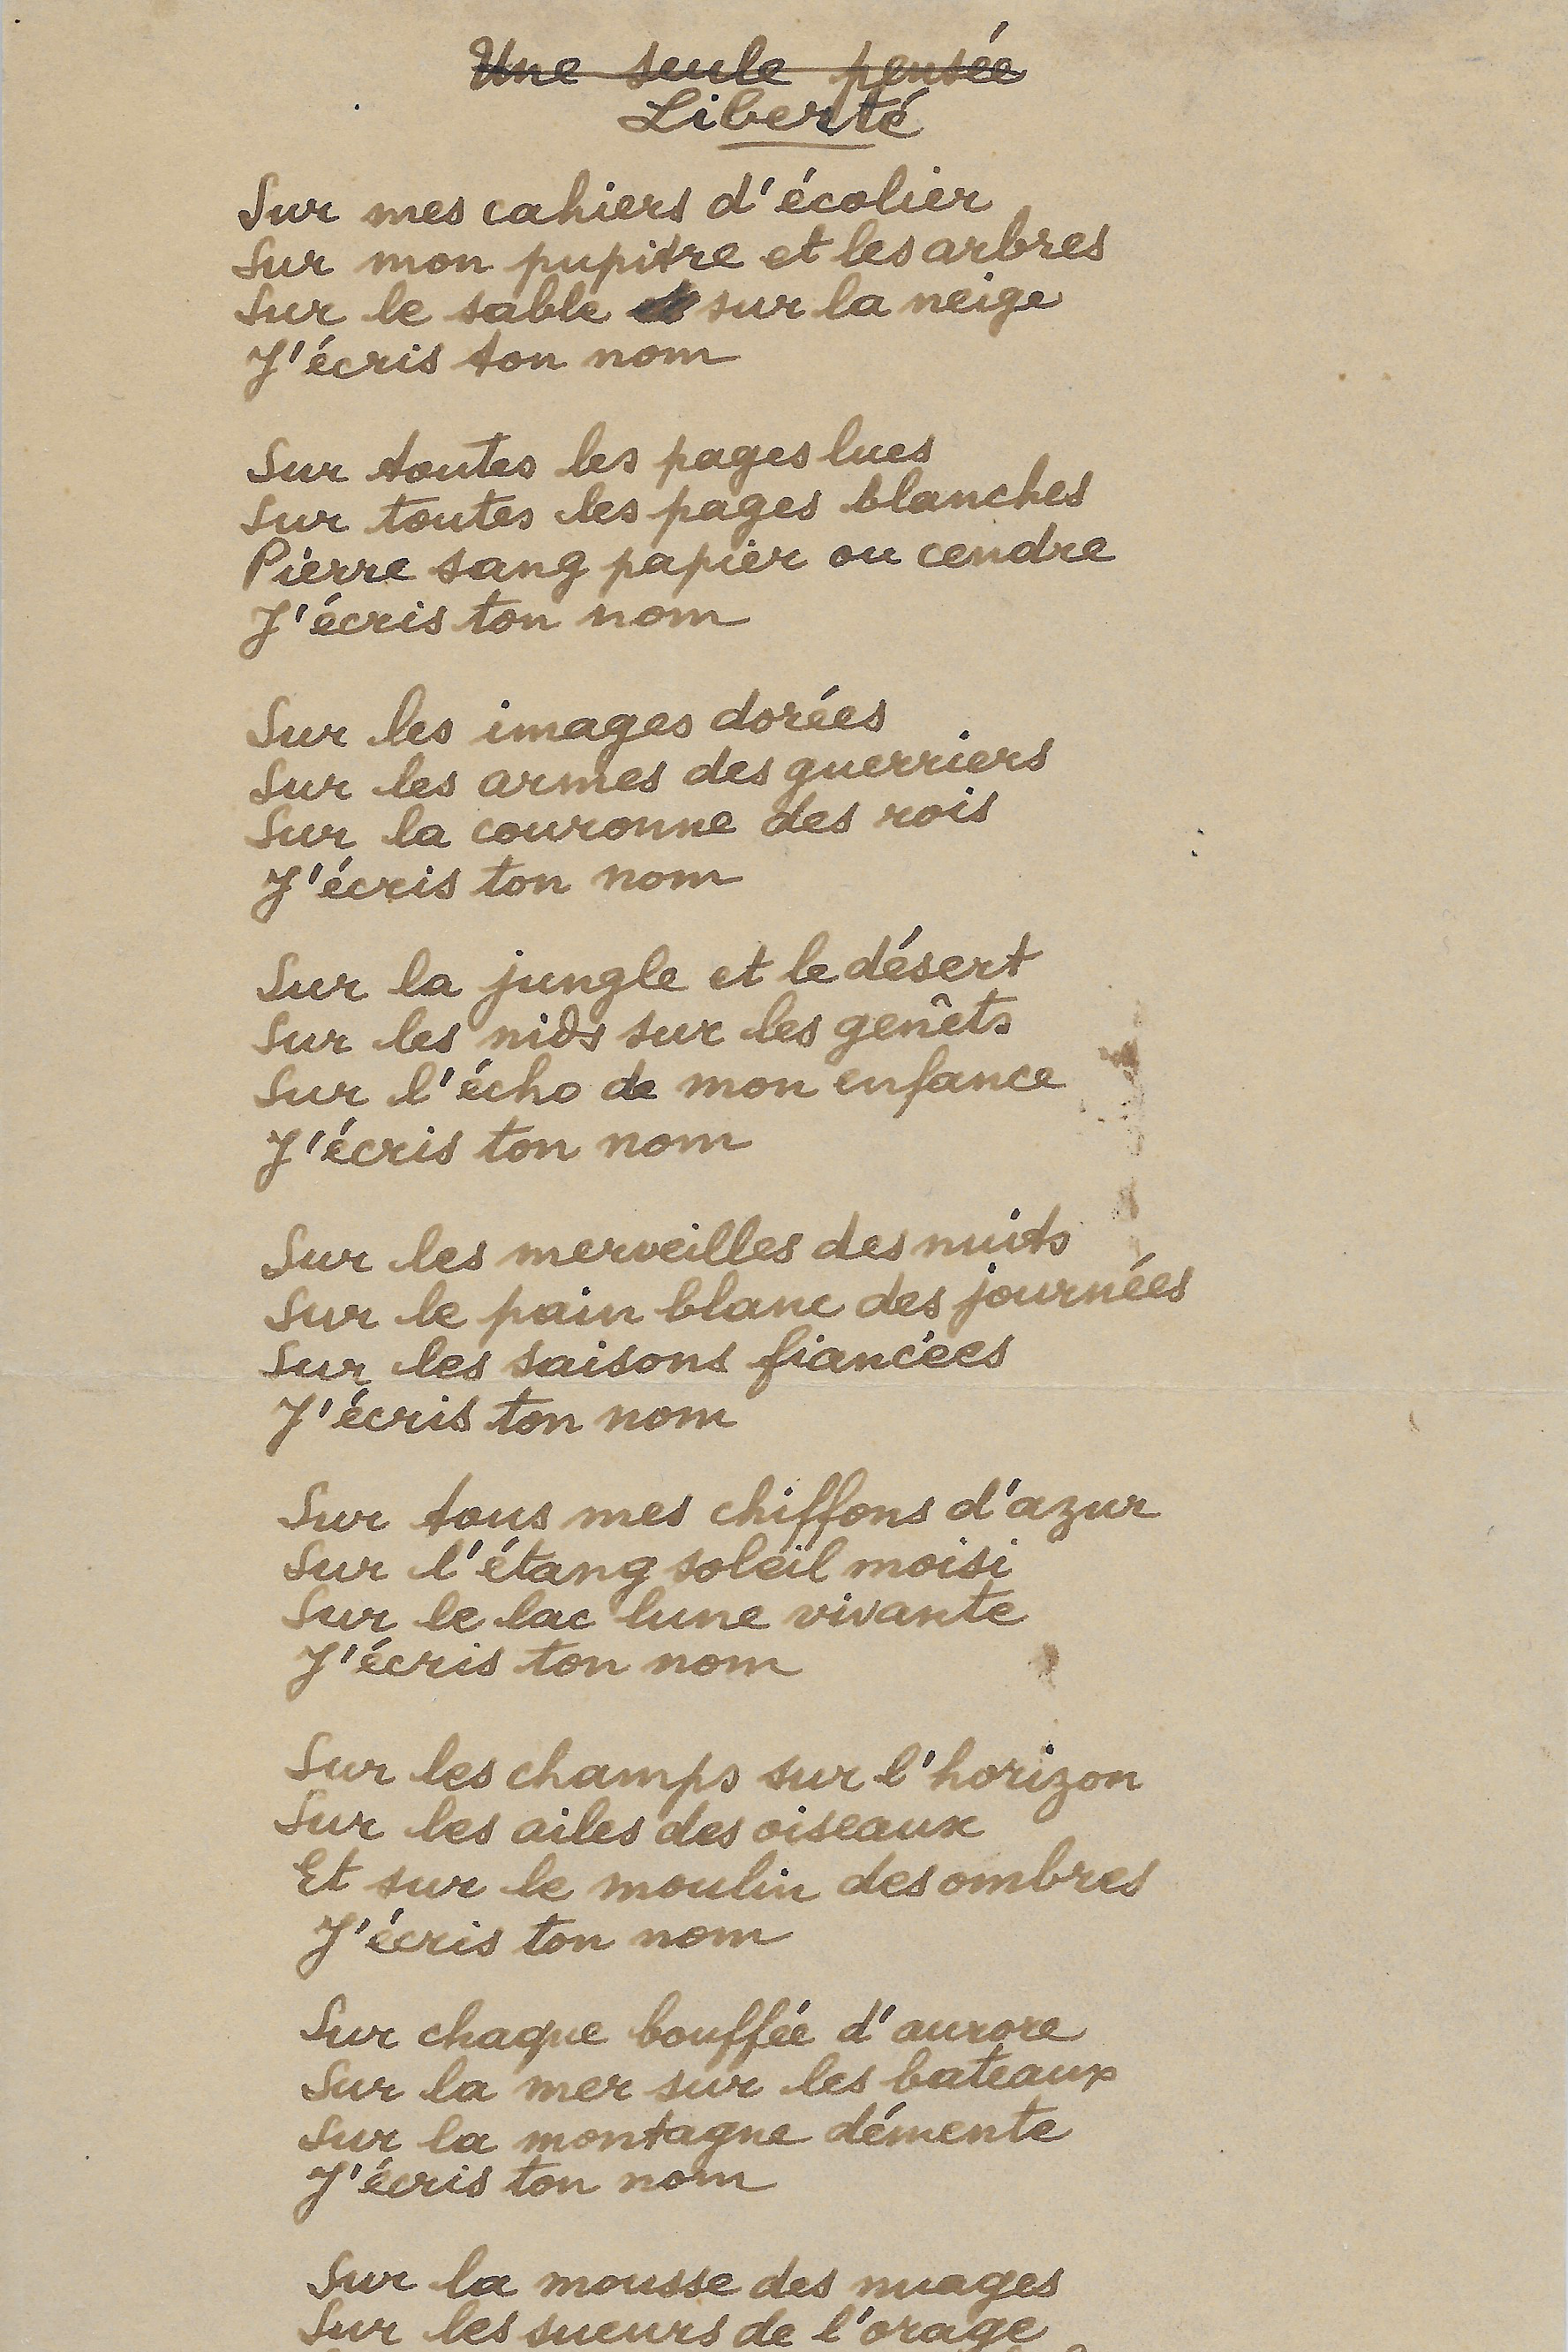 Une seule pensée
Liberté
Sur mes cahiers d'écolier
Sur mon pupitre et les arbres
Sur le sable sur la neige
J'écris ton nom
Sur toutes les pages lues
Sur toutes les pages blanches
Pierre sang papier ou cendre
J'écris ton nom
Sur les images dorées
Sur les armes des guerriers
Sur la couronne des rois
J'écris ton nom
Sur la jungle et le désert
Sur les nids sur les genêts
Sur l'écho de mon enfance
J'écris ton nom
Sur les merveilles des nuits
Sur le pain blanc des journées
Sur les saisons fiancées
J'écris ton nom
Sur tous mes chiffons d'azur
Sur l'étang soleil moisi
Sur le lac lune vivante
J'écris ton nom
Sur les champs sur l'horizon
Sur les ailes des oiseaux
Et sur le moulin des ombres
J'écris ton nom
Sur chaque bouffée d'aurore
Sur la mer sur les bateaux
Sur la montagne démente
J'écris ton nom
Sur la mousse des nuages
Sur les sueurs de l'orage